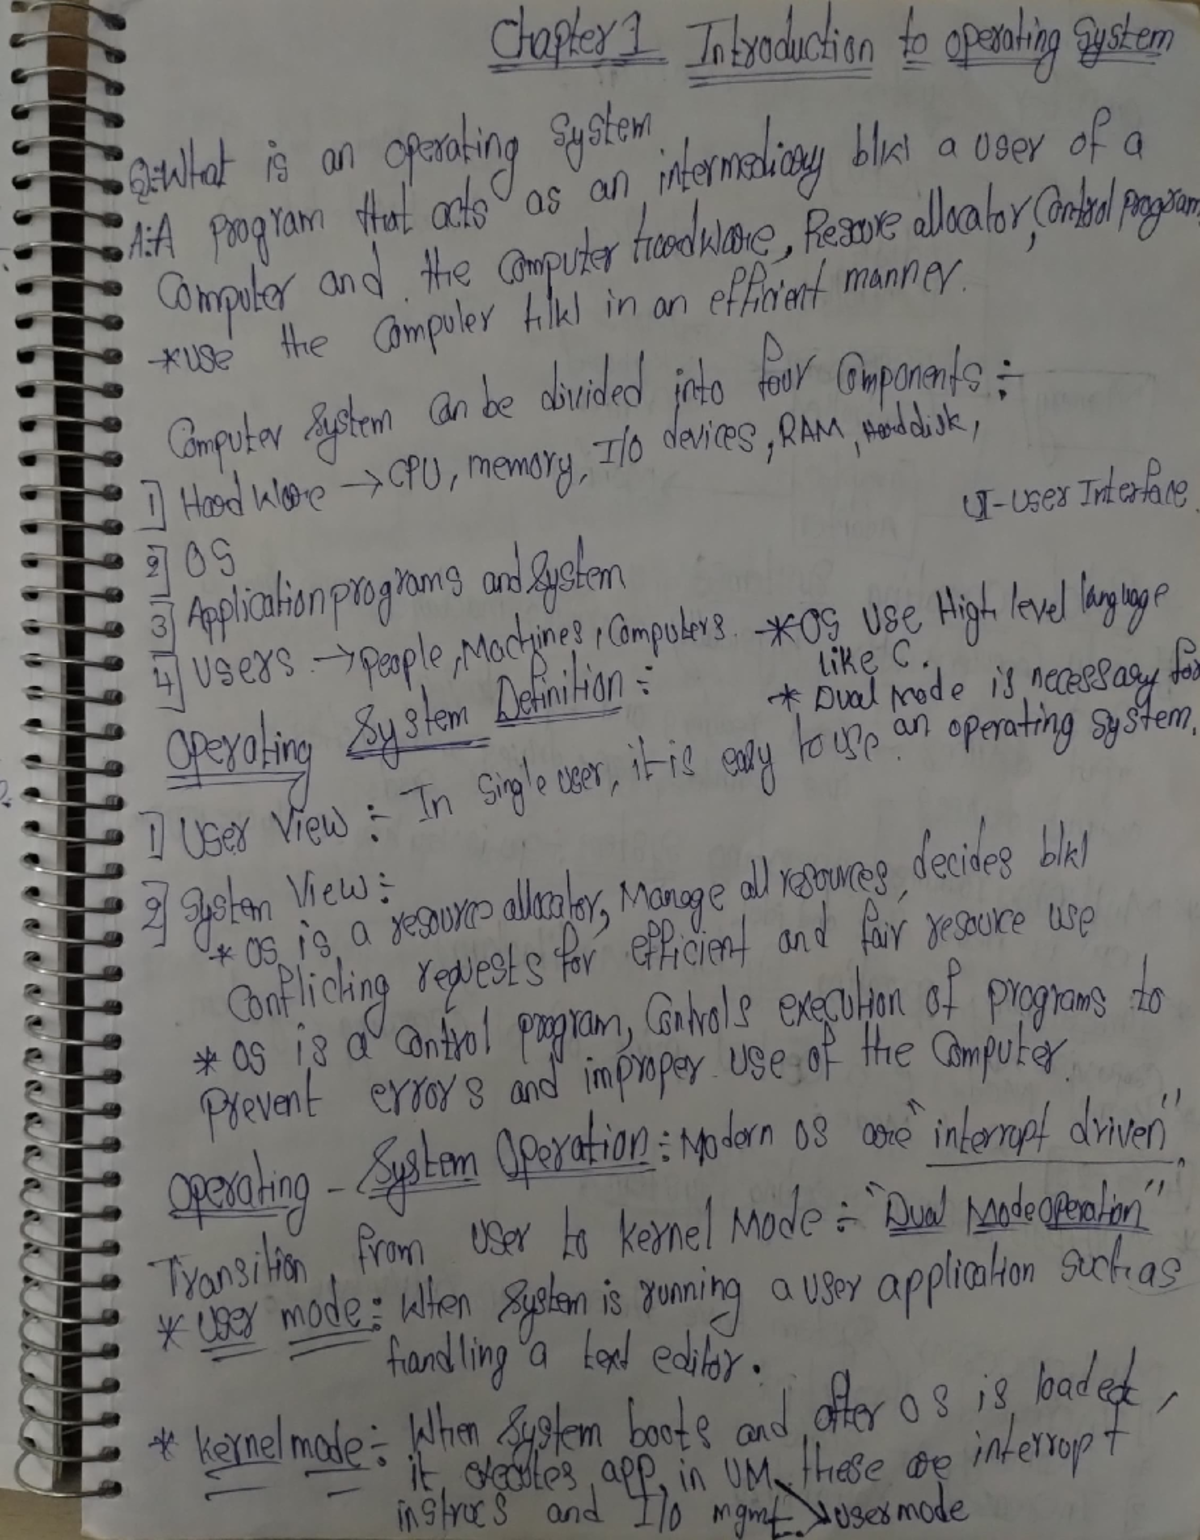 Chapter 1 Introduction to operating System
Q:What is an operating System
A:A program that acts as an intermedicary b/w a user of a
Computer and the Computer Hardware, Resource allocator, Control program
*use the Computer H/w in an efficient manner.
Computer System Can be divided into four Components :-
1] Hardware → CPU, memory, I/O devices, RAM, Harddisk,
UI-User Interface.
2] OS
3] Application programs and System
4] Users → People, Machines, Computers. *OS use High level language
like C.
* Dual mode is necessary for
an operating system.
Operating System Definition :-
1] User View :- In Single user, it is easy to use.
2] System View :-
* OS is a resource allocator, Manage all resources, decides b/w
Conflicting requests for efficient and fair resource use
* OS is a Control program, Controls execution of programs to
prevent errors and improper use of the Computer.
Operating - System Operation :- Modern OS are "interrupt driven"
Transition from User to kernel Mode :- "Dual Mode operation"
* User mode :- When System is running a user application such as
handling a text editor.
* kernel mode :- When System boots and after OS is loaded,
it executes app. in UM, these are interrupt
instrucs and I/O mgmt. → user mode